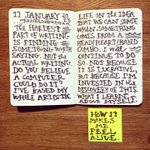 11 JANUARY
THE HARDEST
PART OF WRITING
IS FINDING
SOMETHING WORTH
SAYING, NOT THE
ACTUAL WRITING.
DO YOU BELIEVE
A COMPUTER
COULD DO IT?
I'VE BASED MY
WHOLE ARTISTIC
LIFE ON THE IDEA
THAT WE CAN'T SAY
WHEN SOMETHING
COMES FROM A
HEART
WILL
CONTINUE
TO DO SO. NOT
BECAUSE IT
IS LUCRATIVE,
BUT BECAUSE I'M
INVESTED IN THE
DELIVERY OF THIS.
WHAT I
LEARN
ABOUT MYSELF.
HOW IT
MAKES
ME FEEL
ALIVE.